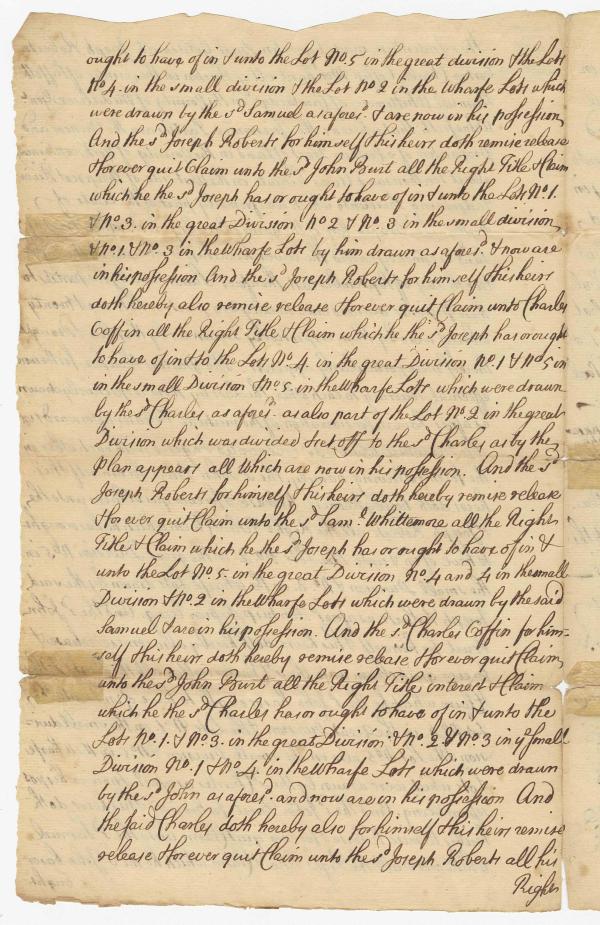 ought to have of in & unto the Lot No. 5 in the great division & the Lots
No 4. in the small division & the Lot No 2 in the Wharfe Lots which
were drawn by the sd Samuel as afores.d & are now in his possession
And the sd Joseph Roberts for himself & his heirs doth remise release
& forever quit Claim unto the sd John Burt all the Right Title & Claim
which he the sd Joseph has or ought to have of in & unto the Lots No 1.
& No 3. in the great Division No 2 & No 3 in the small division
& No 1 & No 3 in the Wharfe Lots by him drawn as afores.d & now are
in his possession And the sd Joseph Roberts for himself & his heirs
doth hereby also remise release & forever quit Claim unto Charles
Coffin all the Right Title & Claim which he the sd Joseph has or ought
to have of in & to the Lots No 4. in the great Division No. 1 & No 5 in
in the small Division & No. 5. in the Wharfe Lots which were drawn
by the sd Charles as afores.d as also part of the Lot No. 2 in the great
Division which was divided & set off to the sd Charles as by the
Plan appears all which are now in his possession. And the sd
Joseph Roberts for himself & his heirs doth hereby remise release
& forever quit Claim unto the sd Saml. Whittemore all the Right
Title & Claim which he the sd Joseph has or ought to have of in &
unto the Lot No. 5. in the great Division No. 4 and 4 in the small
Division & No. 2 in the Wharfe Lots which were drawn by the said
Samuel & are in his possession. And the sd Charles Coffin for him=
self & his heirs doth hereby remise release & forever quit Claim
unto the sd John Burt all the Right Title interest & Claim
which he the sd Charles has or ought to have of in & unto the
Lots No. 1. & No 3. in the great Division & No. 2 & No 3 in ye small
Division No. 1 & No 4. in the Wharfe Lots which were drawn
by the sd John as afores.d and now are in his possession And
the said Charles doth hereby also for himself & his heirs remise
release & forever quit Claim unto the sd Joseph Roberts all his
Right